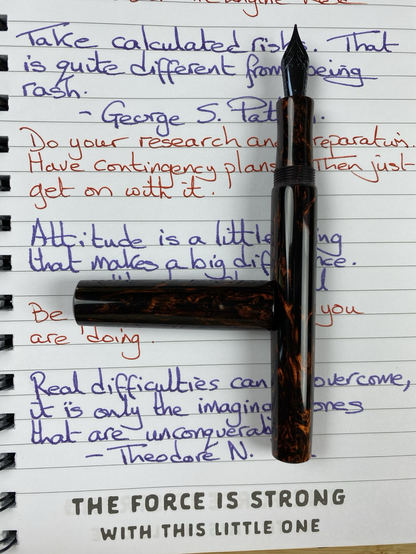 Take calculated risks. That
is quite different from being
rash.
- George S. Pat
Do your research and preparation.
Have contingency plans. Then just
get on with it.
Attitude is a little
that makes a big difference.
Be you
are doing.
Real difficulties can overcome,
it is only the imaginary ones
that are unconquerable
- Theodore N.
THE FORCE IS STRONG
WITH THIS LITTLE ONE